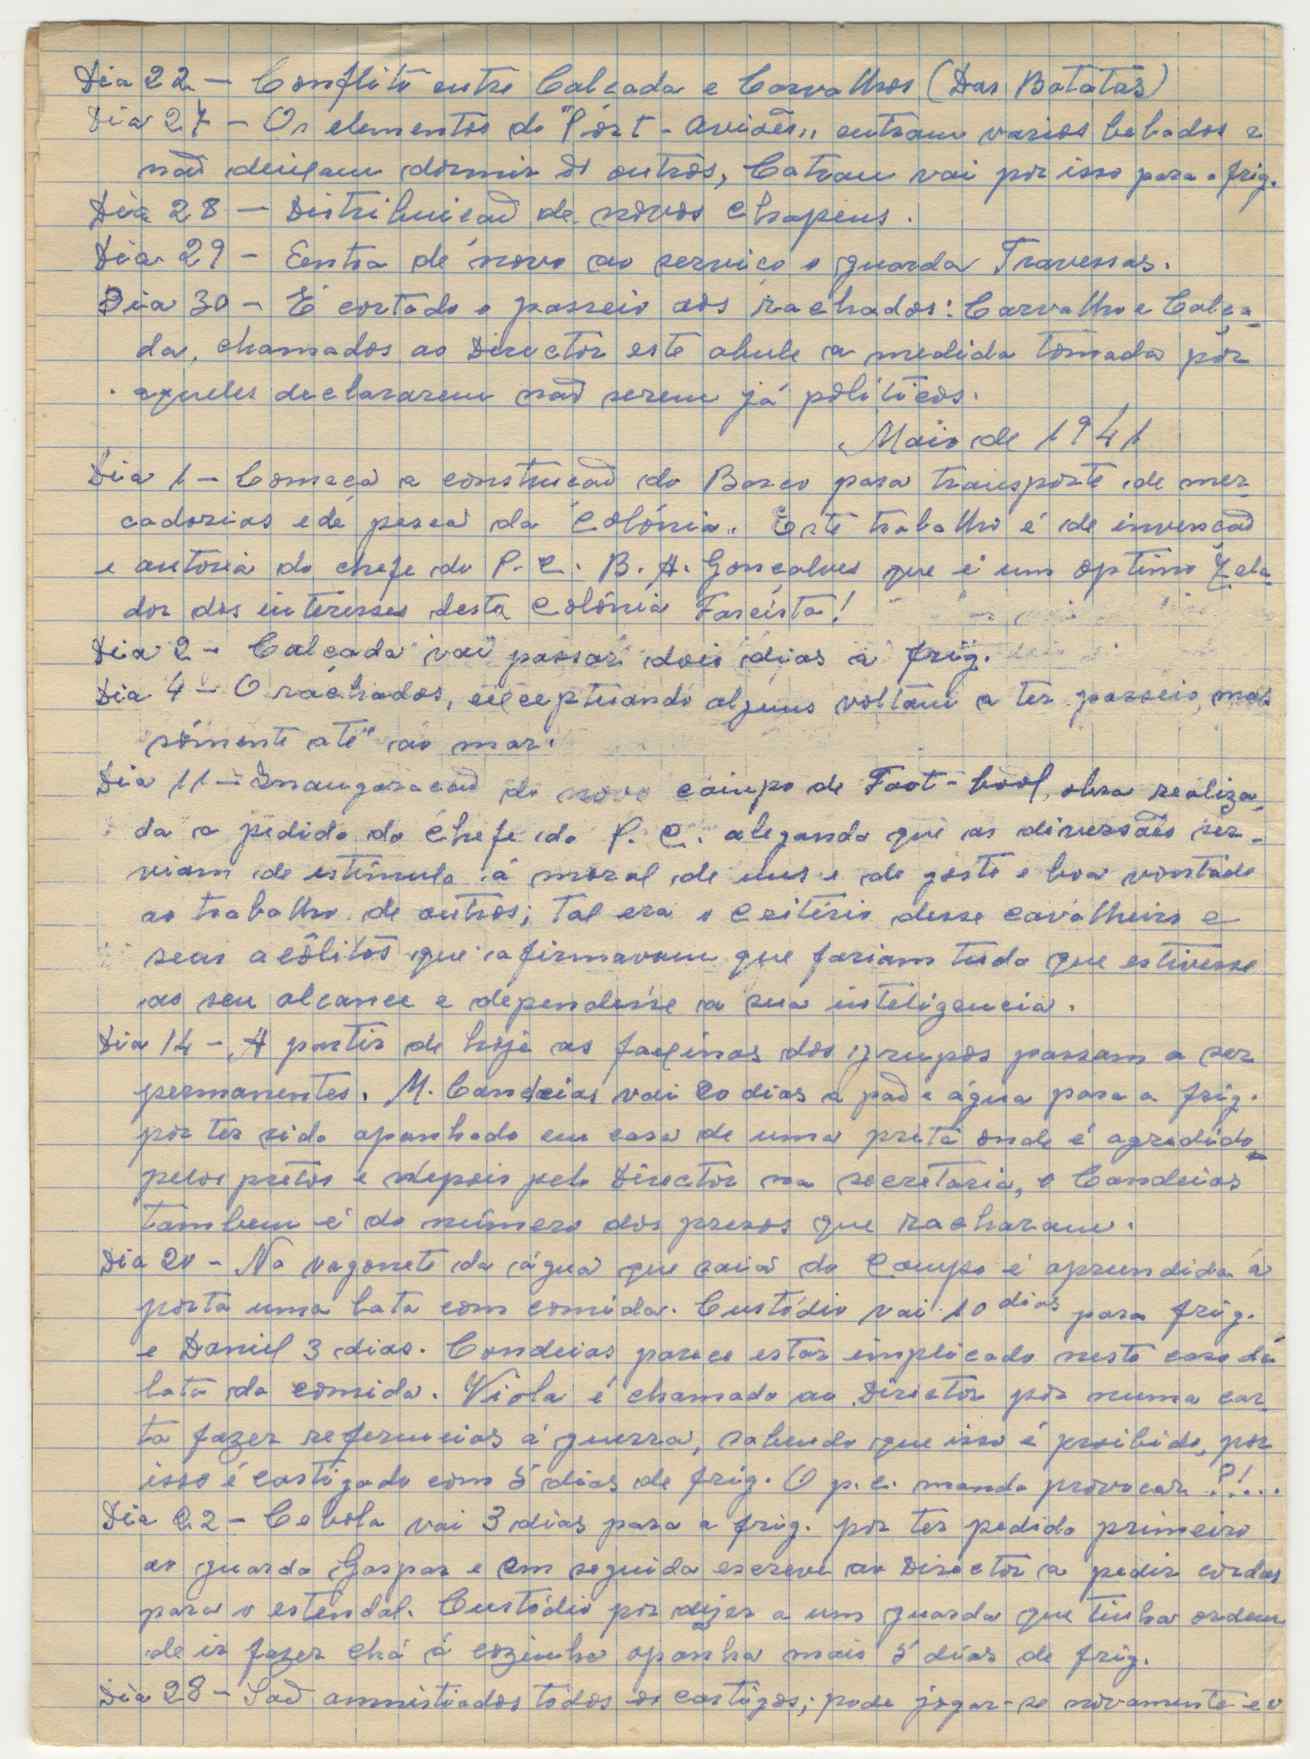 Dia 22 - Conflito entre Calçada e Carvalhos (Das Batatas)
Dia 27 - Os elementos do "Port-Aviões" entram varios bebados e
não deixam dormir os outros, Catrau vai por isso para a frig.
Dia 28 - Distribuição de novos chapeus.
Dia 29 - Entra de novo ao serviço o guarda Travessas.
Dia 30 - É cortado o passeio aos rachados: Carvalho e Calça-
da, chamados ao Director este abule a medida tomada por
aqueles declararem não serem já políticos.
Maio de 1941
Dia 1 - Começa a construção do Barco para transporte de mer-
cadorias e de pesca da Colónia. Este trabalho é de invenção
e autoria do chefe do P.C. B. A. Gonçalves que é um optimo Zela-
dor dos interesses desta Colónia Fascista!
Dia 2 - Calçada vai passar dois dias á frig.
Dia 4 - O rachados, exceptuando alguns voltam a ter passeio, mas
sómente até ao mar.
Dia 11 - Inauguração do novo campo de Foot-bool, obra realiza-
da a pedido do Chefe do P.C. alegando que as diversões ser-
viam de estímulo á moral de uns e de gosto e boa vontade
ao trabalho de outros; tal era o critério desse cavalheiro e
seus acólitos que afirmavam que fariam tudo que estivesse
ao seu alcance e dependesse a sua inteligencia.
Dia 14 - A partir de hoje as faxinas dos grupos passam a ser
permanentes. M. Candeias vai 20 dias a pão e água para a frig.
por ter sido apanhado em casa de uma preta onde é agredido
pelos pretos e depois pelo Director na secretaria, o Candeias
tambem é do número dos presos que racharam.
Dia 20 - Na vagonete da água que saia do Campo é aprendida á
porta uma lata com comida. Custódio vai 10 dias para frig.
e Daniel 3 dias. Candeias parece estar implicado neste caso da
lata da comida. Viola é chamado ao Director por numa car-
ta fazer referencias á guerra, sabendo que isso é proibido, por
isso é castigado com 5 dias de frig. O p.c. manda provocar ?!...
Dia 22 - Cebola vai 3 dias para a frig. por ter pedido primeiro
ao guarda Gaspar e em seguida escreve ao Director a pedir cordas
para o estendal. Custódio por dizer a um guarda que tinha ordem
de ir fazer chá á cozinha apanha mais 5 dias de frig.
Dia 28 - São amnistiados todos os castigos; pode jogar-se novamente e o